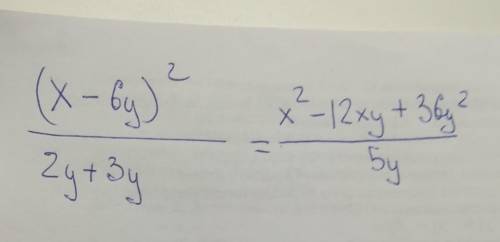 (x - 6y)² / 2y + 3y = x² - 12xy + 36y² / 5y